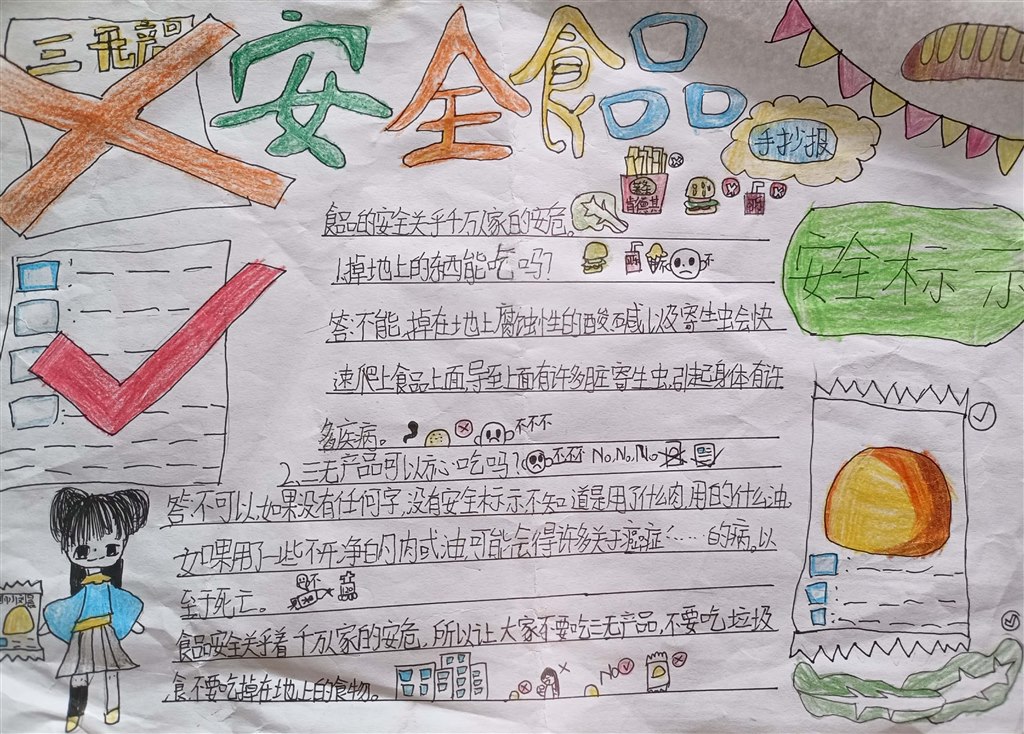 三无产品
安全食品
手抄报
肯德基
食品的安全关乎千万家的安危。
1.掉地上的东西能吃吗?
不
答:不能,掉在地上腐蚀性的酸碱以及寄生虫会快
速爬上食品上面,导至上面有许多脏寄生虫,引起身体有许
多疾病。
不不不
2.三无产品可以放心吃吗?
不不不 No,No,No
答:不可以,如果没有任何字,没有安全标示不知道是用了什么肉,用的什么油,
如果用了一些不干净的肉或油,可能会得许多关于癌症……的病。以
至于死亡。
不
食品安全关乎着千万家的安危,所以让大家不要吃三无产品,不要吃垃圾
食不要吃掉在地上的食物。
No
安全标示